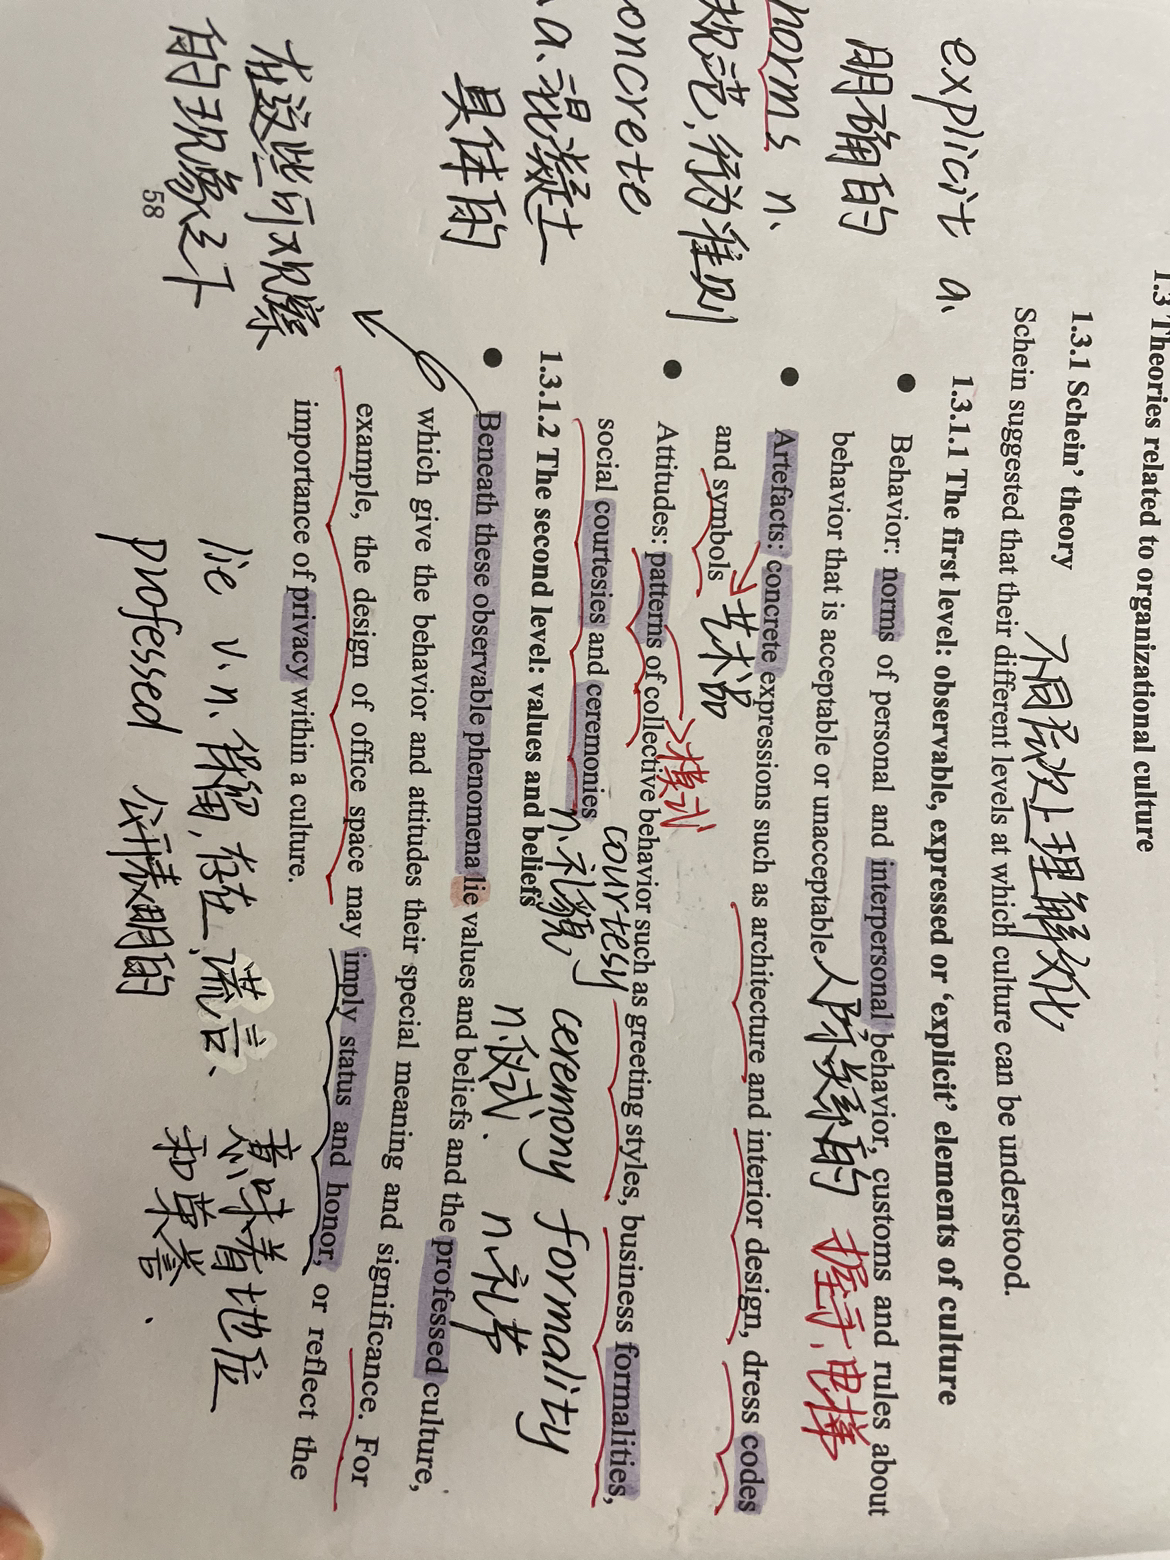 1.3 Theories related to organizational culture
1.3.1 Schein' theory 不同层次上理解文化
Schein suggested that their different levels at which culture can be understood.
explicit a、
明确的
1.3.1.1 The first level: observable, expressed or ‘explicit’ elements of culture
● Behavior: norms of personal and interpersonal behavior, customs and rules about
behavior that is acceptable or unacceptable
人际关系的 握手、电梯
norms n、
规范,行为准则
● Artefacts: concrete expressions such as architecture and interior design, dress codes
and symbols
艺术品
● Attitudes: patterns of collective behavior such as greeting styles, business formalities,
模式
social courtesies and ceremonies
courtesy
n.礼貌,
ceremony
n.仪式.
formality
n.礼节
concrete
a.混凝土
具体的
1.3.1.2 The second level: values and beliefs
● Beneath these observable phenomena lie values and beliefs and the professed culture,
which give the behavior and attitudes their special meaning and significance. For
example, the design of office space may imply status and honor, or reflect the
importance of privacy within a culture.
在这些可观察
的现象之下
lie v.n.保留,存在,谎言、
意味着地位
和荣誉.
professed 公开表明的
58